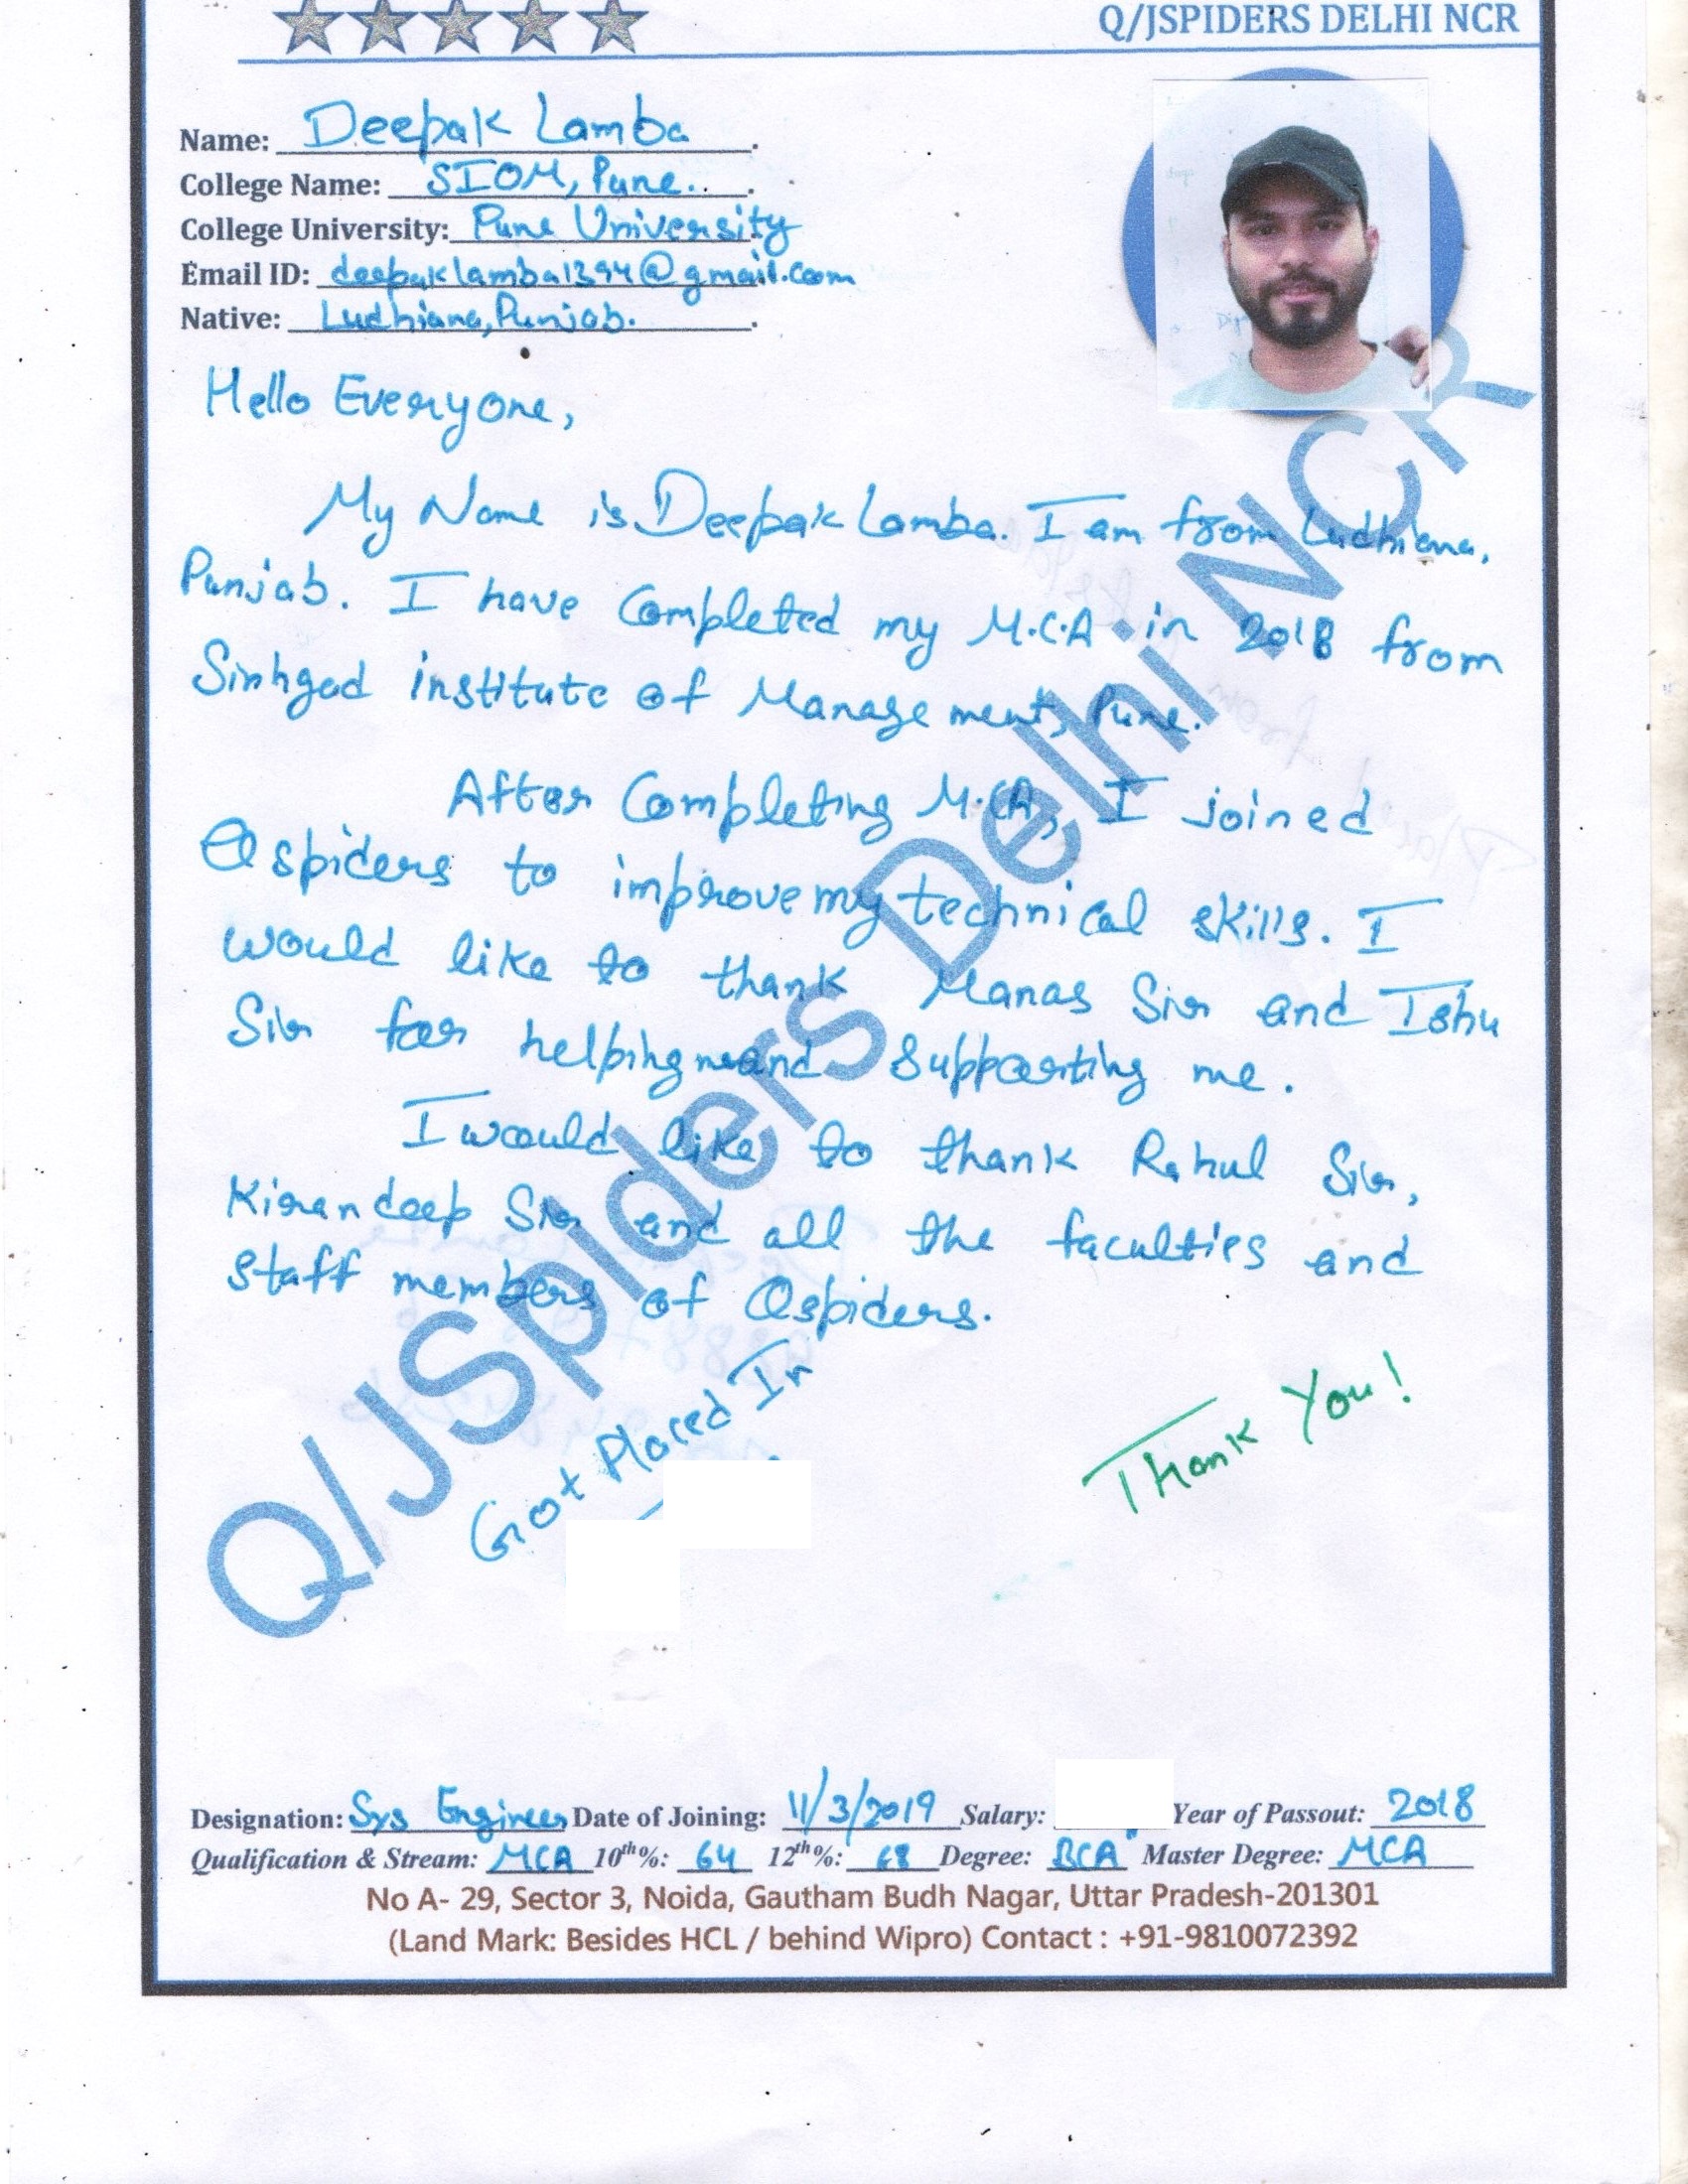 Q/JSPIDERS DELHI NCR
Name: Deepak Lamba.
College Name: SIOM, Pune..
College University: Pune University
Email ID: deepaklamba1394@gmail.com
Native: Ludhiana, Punjab.
Hello Everyone,
My Name is Deepak Lamba. I am from Ludhiana,
Punjab. I have Completed my M.C.A. in 2018 from
Sinhgad institute of Management, Pune.
After Completing M.CA, I joined
Qspiders to improve my technical skills. I
would like to thank Manas Sir and Ishu
Sir for helping me and Supporting me.
I would like to thank Rahul Sir,
Kirandeep Sir and all the faculties and
Staff members of Qspiders.
Got Placed In
Thank You!
Q/JSpiders Delhi NCR
Designation: Sys Engineer Date of Joining: 11/3/2019 Salary: Year of Passout: 2018
Qualification & Stream: MCA 10th%: 64 12th%: 68 Degree: BCA Master Degree: MCA
No A- 29, Sector 3, Noida, Gautham Budh Nagar, Uttar Pradesh-201301
(Land Mark: Besides HCL / behind Wipro) Contact : +91-9810072392